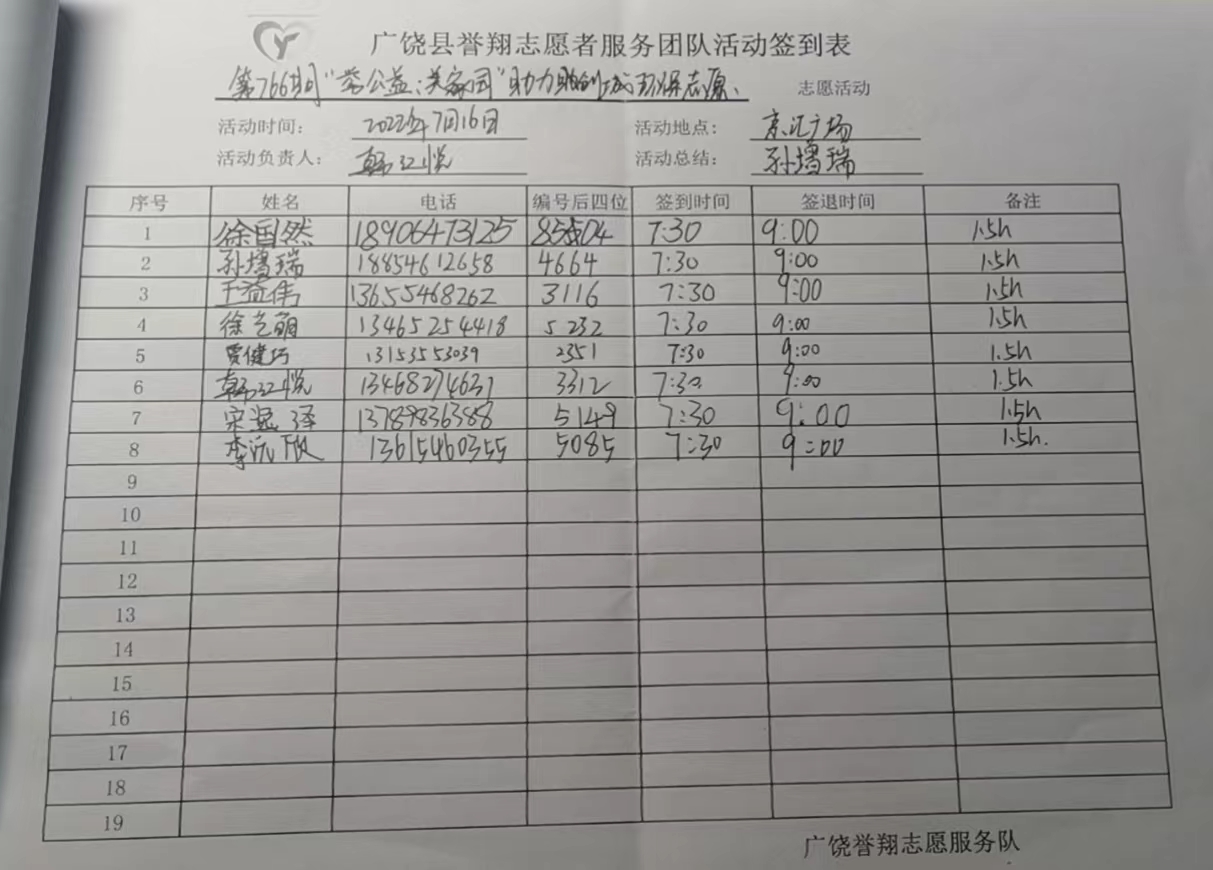 广饶县誉翔志愿者服务团队活动签到表
第766期"益公益:美家园"助力 创城环保志愿、 志愿活动
活动时间： 2022年7月16日 活动地点： 广场
活动负责人： 韩红悦 活动总结： 孙增瑞
序号 姓名 电话 编号后四位 签到时间 签退时间 备注
1 徐国然 18906473125 7:30 9:00 1.5h
2 孙增瑞 18854612658 4664 7:30 9:00 1.5h
3 王益伟 13655468262 3116 7:30 9:00 1.5h
4 徐艺萌 13465254418 5232 7:30 9:00 1.5h
5 贾健巧 13153553039 2351 7:30 9:00 1.5h
6 韩红悦 13468274631 3312 7:30 9:00 1.5h
7 宋 泽 13789836388 5149 7:30 9:00 1.5h
8 李沅 13615460355 5085 7:30 9:00 1.5h.
9
10
11
12
13
14
15
16
17
18
19
广饶誉翔志愿服务队